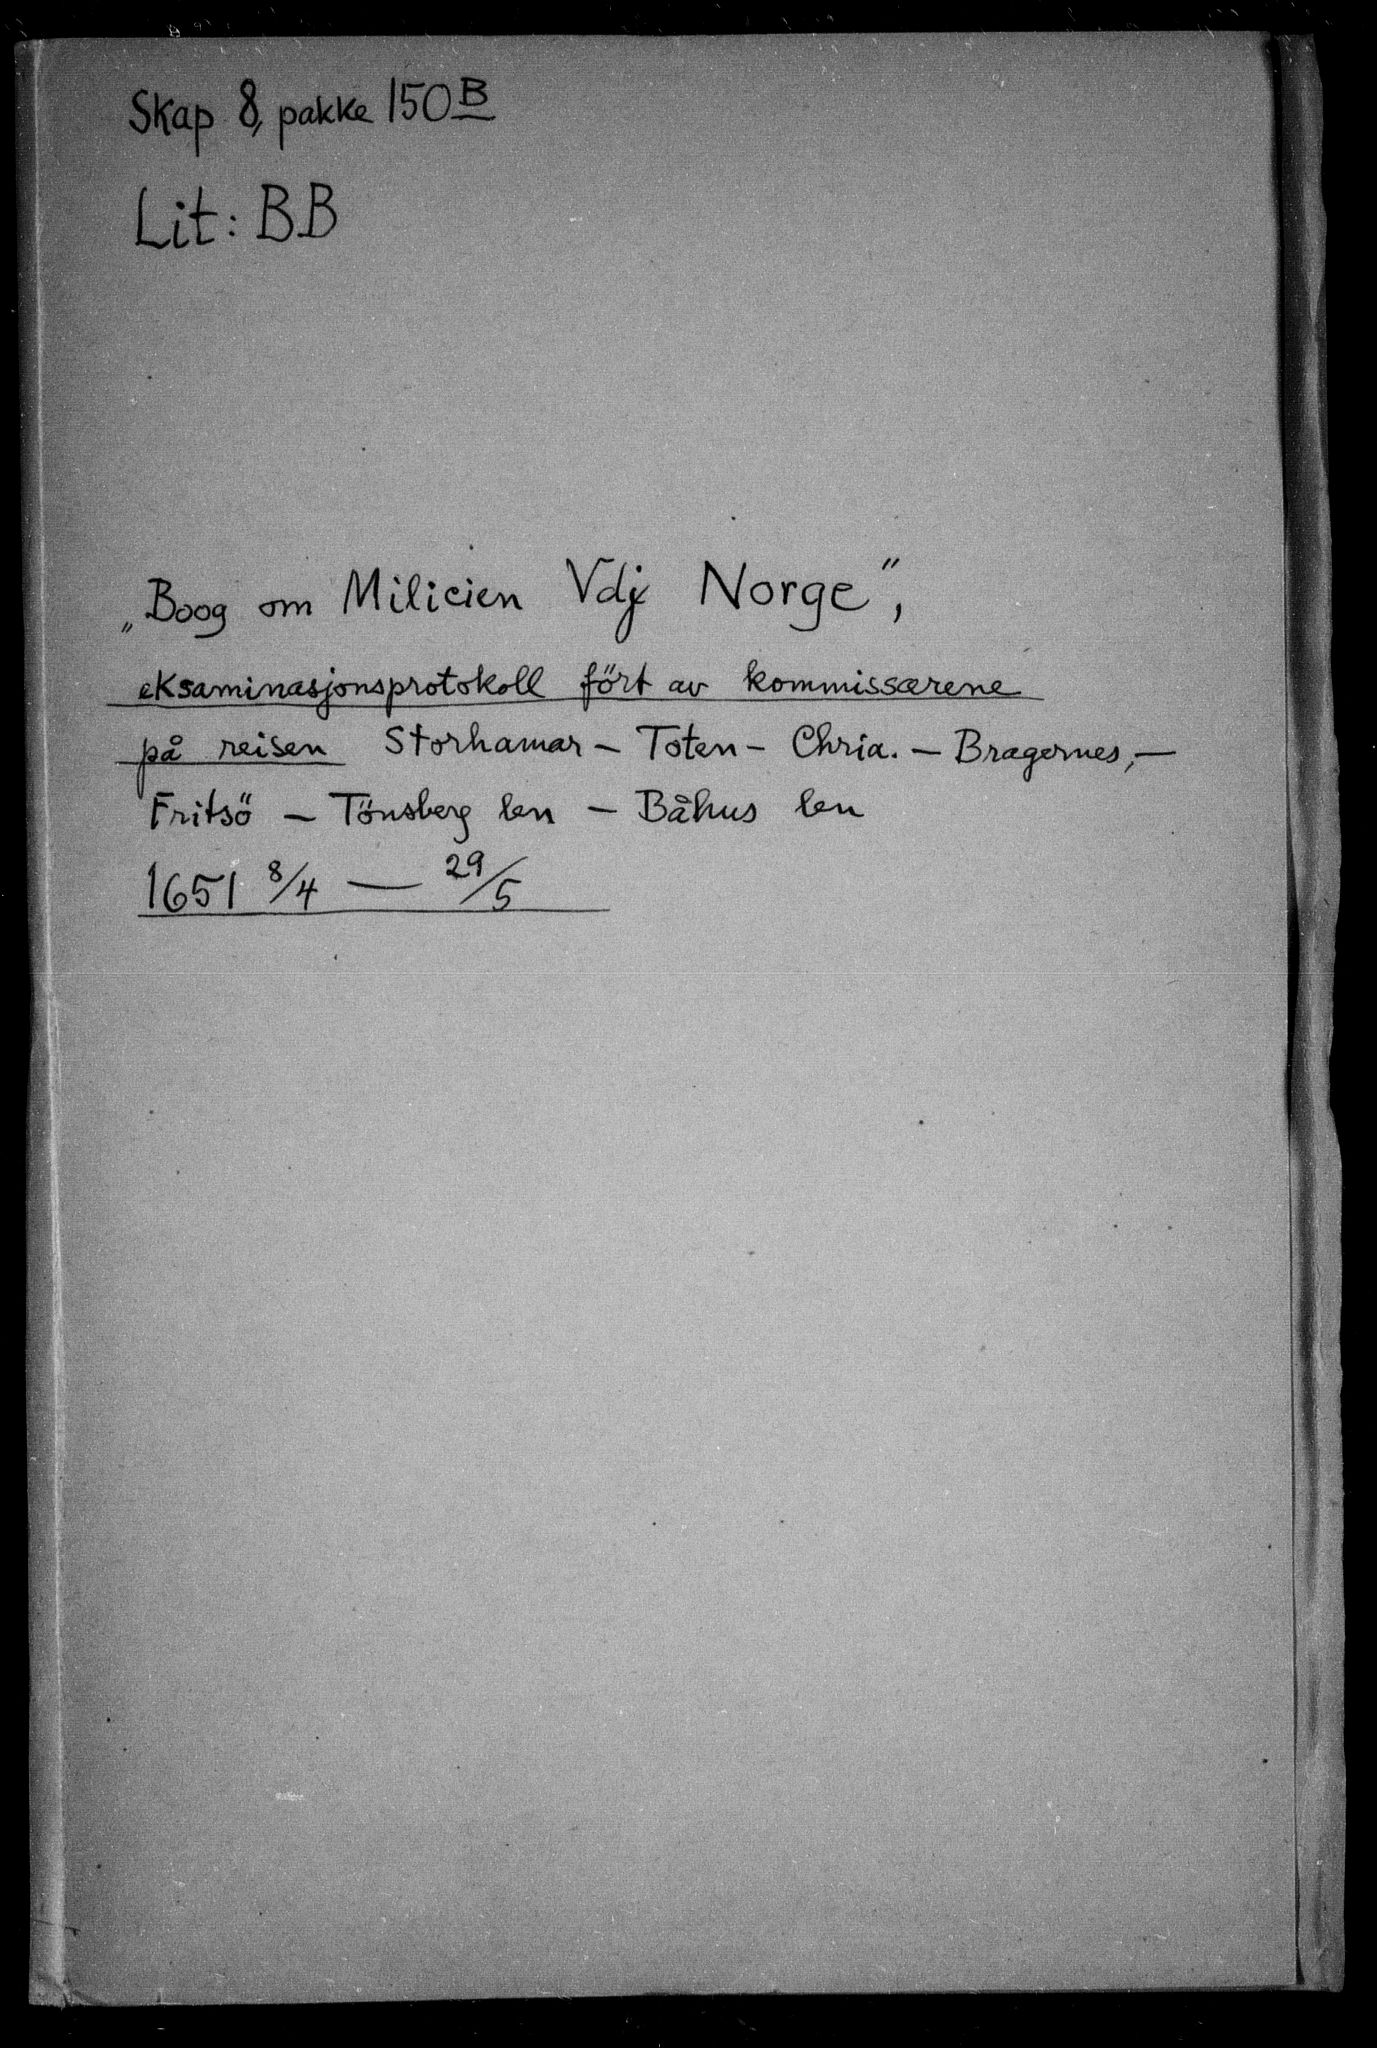 Skap 8, pakke 150 B
Lit: BB
„Boog om Milicien Vdj Norge",
eksaminasjonsprotokoll fört av kommissærene
på reisen Storhamar – Toten – Chria. – Bragernes, –
Fritsö – Tönsberg len – Båhus len
1651 8/4 — 29/5